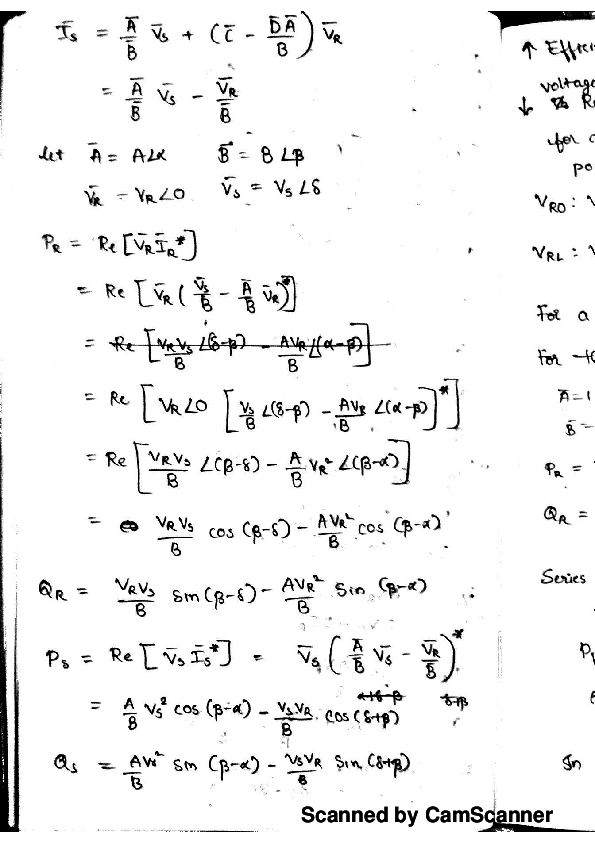 Īs = Ā/B̄ V̄s + (C̄ - D̄Ā/B̄) V̄R
= Ā/B̄ V̄s - V̄R/B̄
let Ā = A∠α B̄ = B∠β
V̄R = VR∠0 V̄s = Vs∠δ
PR = Re [V̄R ĪR*]
= Re [V̄R (V̄s/B̄ - Ā/B̄ V̄R)*]
= Re [VRVs/B ∠(δ-β) - AVR/B ∠(α-β)]
= Re [VR∠0 [Vs/B ∠(δ-β) - AVR/B ∠(α-β)]*]
= Re [VRVs/B ∠(β-δ) - A/B VR² ∠(β-α)]
= VRVs/B cos (β-δ) - AVR²/B cos (β-α)
QR = VRVs/B Sin (β-δ) - AVR²/B Sin (β-α)
Ps = Re [V̄s Īs*] = V̄s (Ā/B̄ V̄s - V̄R/B̄)*
α+δ-β δ+β
= A/B Vs² cos (β-α) - VsVR/B cos (δ+β)
Qs = AVs²/B Sin (β-α) - VsVR/B Sin (δ+β)
↑ Effici
voltage
↓ Re
for a
po
VRO : V
VRL : V
For a
For
Ā = 1
B̄ =
PR =
QR =
Series
P
In
Scanned by CamScanner